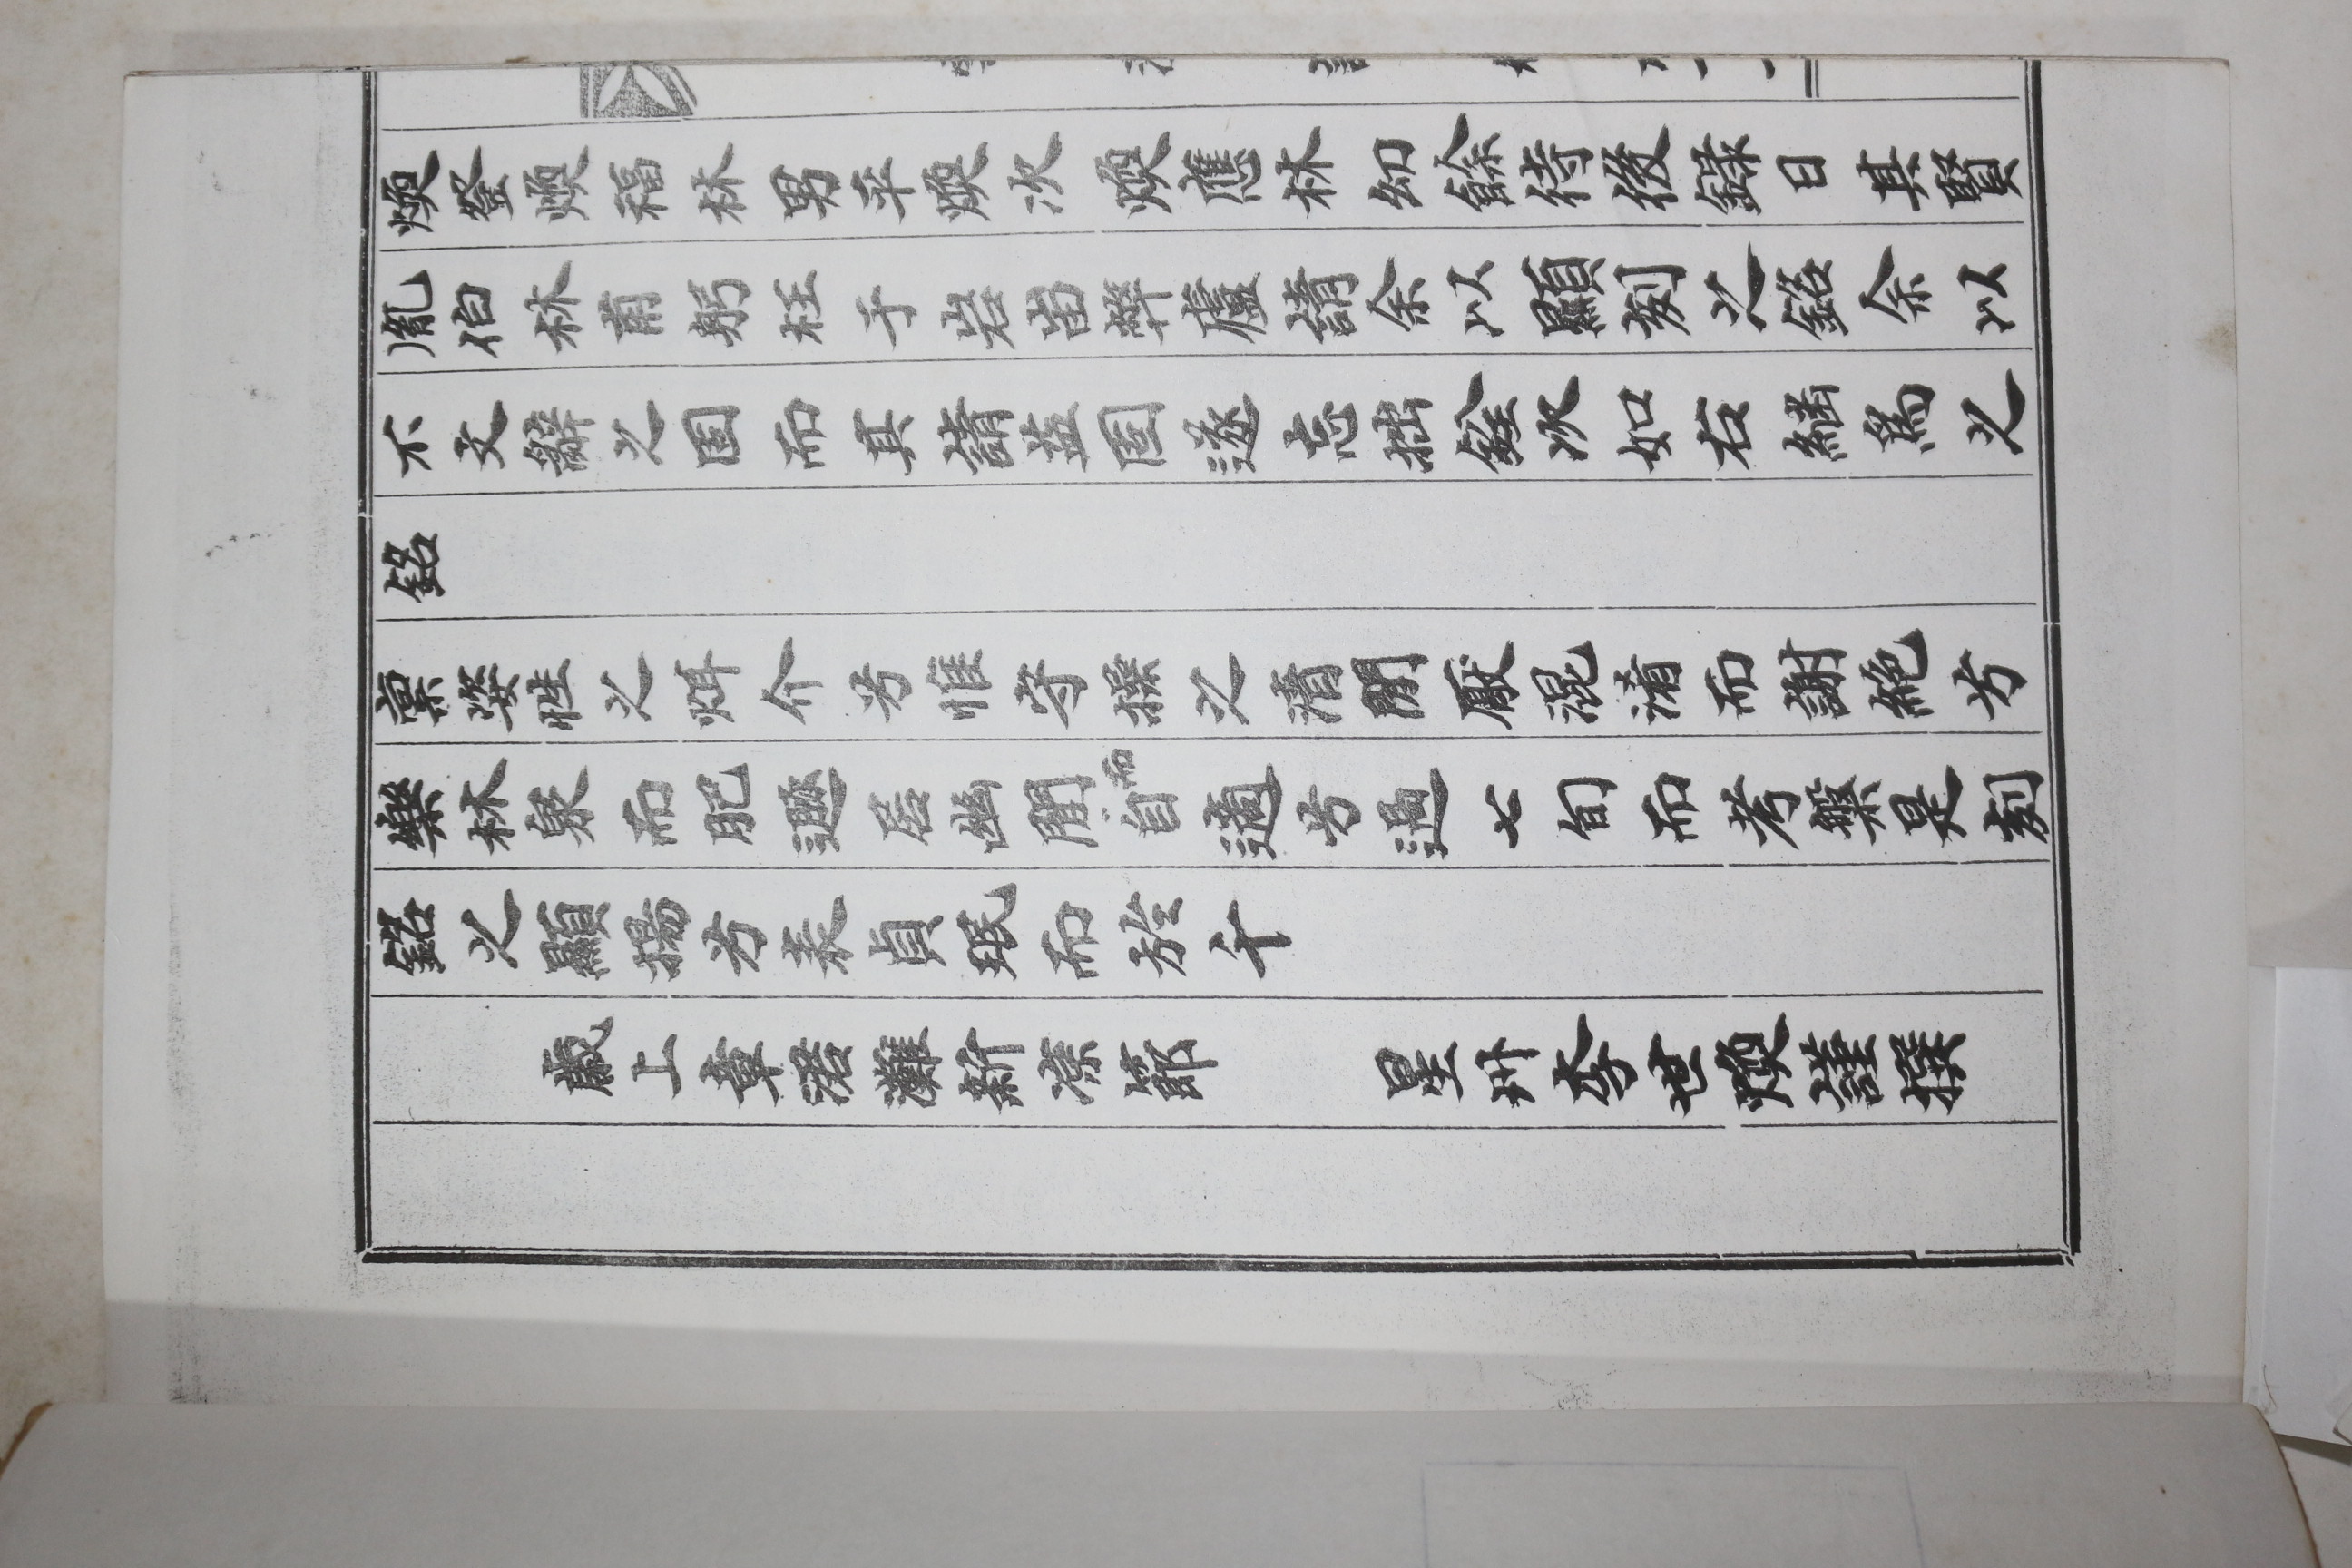 煥登煥福林男平煥次煥應林幼餘待後錄日其賢
胤伯林甫躬枉于岩畄弊廬請余以顯刻之銘余以
不文辭之固而其請益固遂忘拙銓次如右繼爲之
銘
稟姿性之炯介兮惟守操之淸閒厭混淆而謝絶兮
樂林泉而肥遯居幽閒而自適兮過七旬而考槃是刻
銘之顯揚兮表貞珉而於千
歲上章涒灘新凉節 星州李世煥謹撰